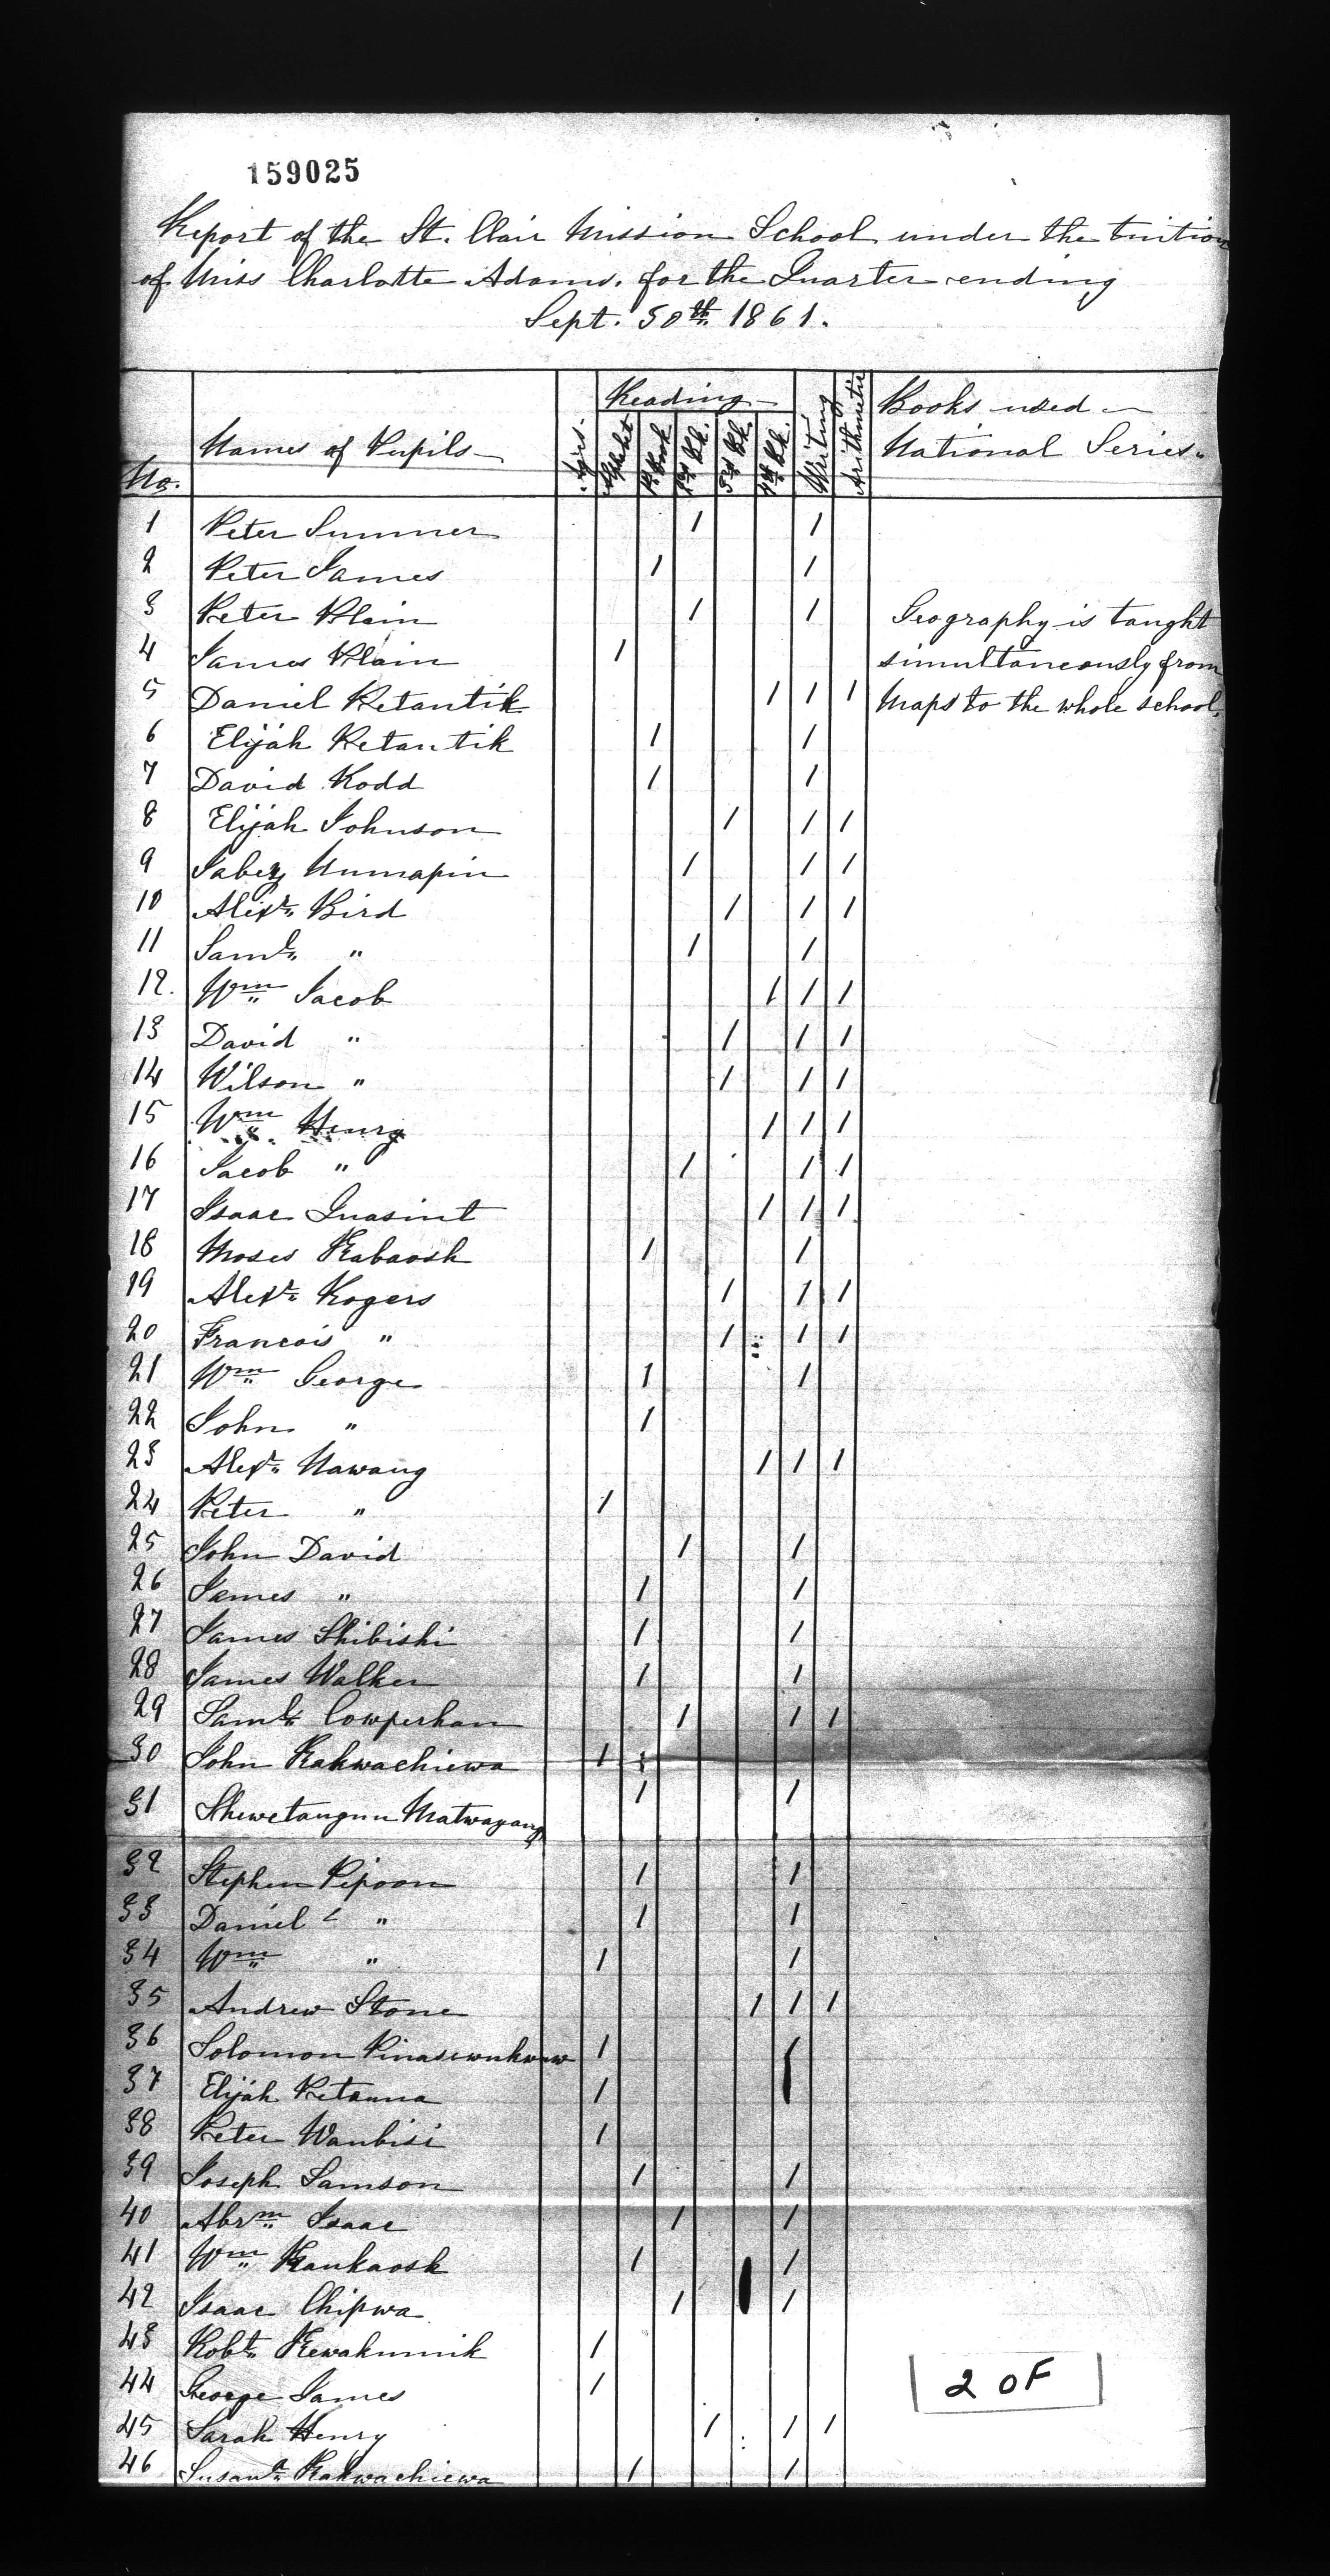 159025
Report of the St. Clair Mission School under the tuition
of Miss Charlotte Adams. for the Quarter ending
Sept. 30th 1861.
No. Names of Pupils Ages. Reading Alphabet 1st Book 2nd Bk. 3rd Bk. 4th Bk. Writing Arithmetic Books used
National Series.
1 Peter Summer 1 1
2 Peter James 1 1
3 Peter Plain 1 1 Geography is taught
4 James Plain 1 simultaneously from
5 Daniel Petantik 1 1 1 Maps to the whole school.
6 Elijah Petantik 1 1
7 David Rodd 1 1
8 Elijah Johnson 1 1 1
9 Jabez 1 1 1
10 Alexr. Bird 1 1 1
11 Saml. " 1 1
12. Wm. Jacob 1 1 1
13 David " 1 1 1
14 Wilson " 1 1 1
15 Wm. Henry 1 1 1
16 Jacob " 1 1 1
17 Isaac Quasint 1 1 1
18 Moses Kabaosh 1 1
19 Alexr. Rogers 1 1 1
20 Francois " 1 1 1
21 Wm. George 1 1
22 John " 1
23 Alexr. Nawang 1 1 1
24 Peter " 1
25 John David 1 1
26 James " 1 1
27 James Shibishi 1 1
28 James Walker 1 1
29 Saml. Cowperhan 1 1 1
30 John Kahwachiewa 1 1
31 Matwayang 1 1
32 Stephen Pipoon 1 1
33 Daniel " 1 1
34 Wm. " 1 1
35 Andrew Stone 1 1 1
36 Solomon 1 1
37 Elijah Petanna 1
38 Peter Wanbisi 1
39 Joseph Samson 1 1
40 Abrm. Isaac 1 1
41 Wm. Kankaosh 1 1
42 Isaac Chipwa 1 1
43 Robt. Kewakumik 1
44 George James 1
45 Sarah Henry 1 1 1
46 Susana. Kahwachiewa 1 1
2 OF